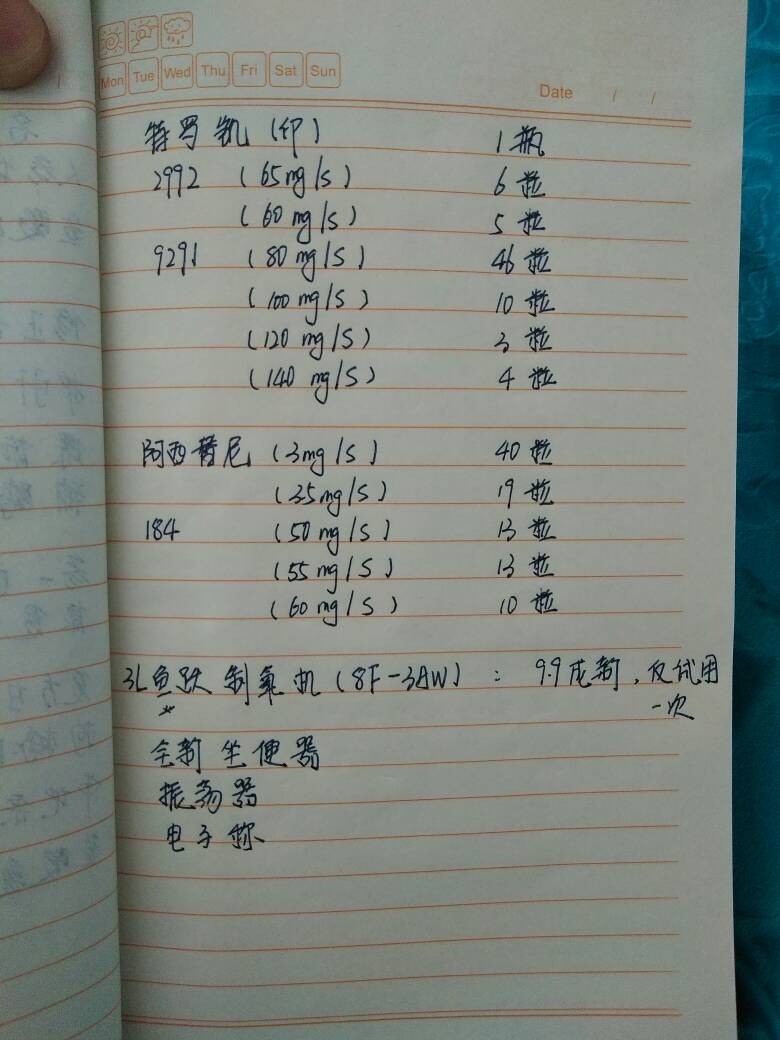 Mon Tue Wed Thu Fri Sat Sun
Date / /
特罗凯 (印) 1瓶
2992 (65mg/s) 6粒
(60mg/s) 5粒
9291 (80mg/s) 46粒
(100mg/s) 10粒
(120mg/s) 3粒
(140mg/s) 4粒
阿西替尼 (3mg/s) 40粒
(3.5mg/s) 19粒
184 (50mg/s) 13粒
(55mg/s) 13粒
(60mg/s) 10粒
3L鱼跃制氧机 (8F-3AW) : 9.9成新,仅试用
一次
全新坐便器
振荡器
电子称